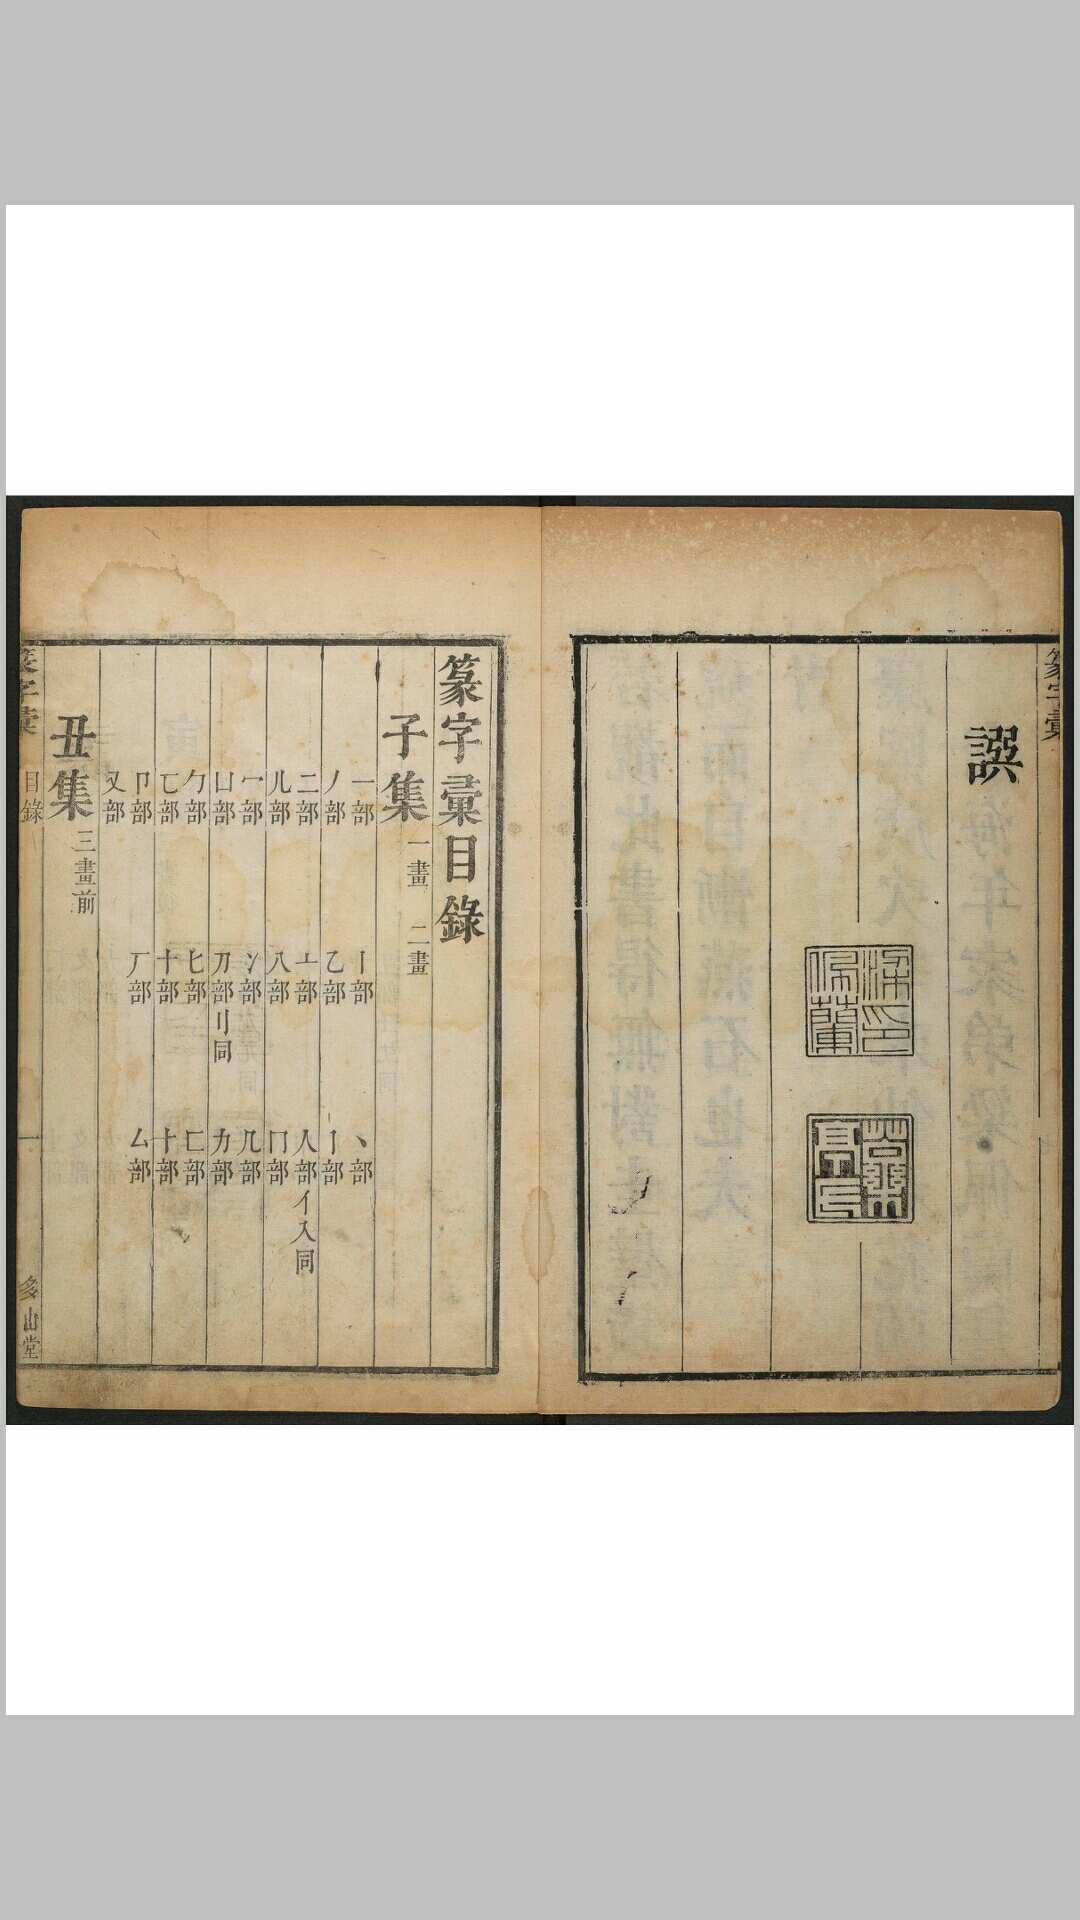 篆字彙
譔
篆字彙目錄
子集 一畫 二畫
一部 丨部 丶部
丿部 乙部 亅部
二部 亠部 人部 亻入同
儿部 八部 冂部
冖部 冫部 几部
凵部 刀部 刂同 力部
勹部 匕部 匚部
匸部 十部
卩部 厂部 厶部
又部
丑集 三畫前
篆字彙 目錄 一 多山堂